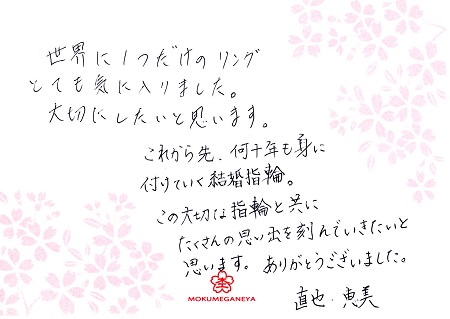 世界に1つだけのリング
とても気に入りました。
大切にしたいと思います。
これから先、何十年も身に
付けていく結婚指輪。
この大切な指輪と共に
たくさんの思い出を刻んでいきたいと
思います。ありがとうございました。
杢
MOKUMEGANEYA
直也・恵美